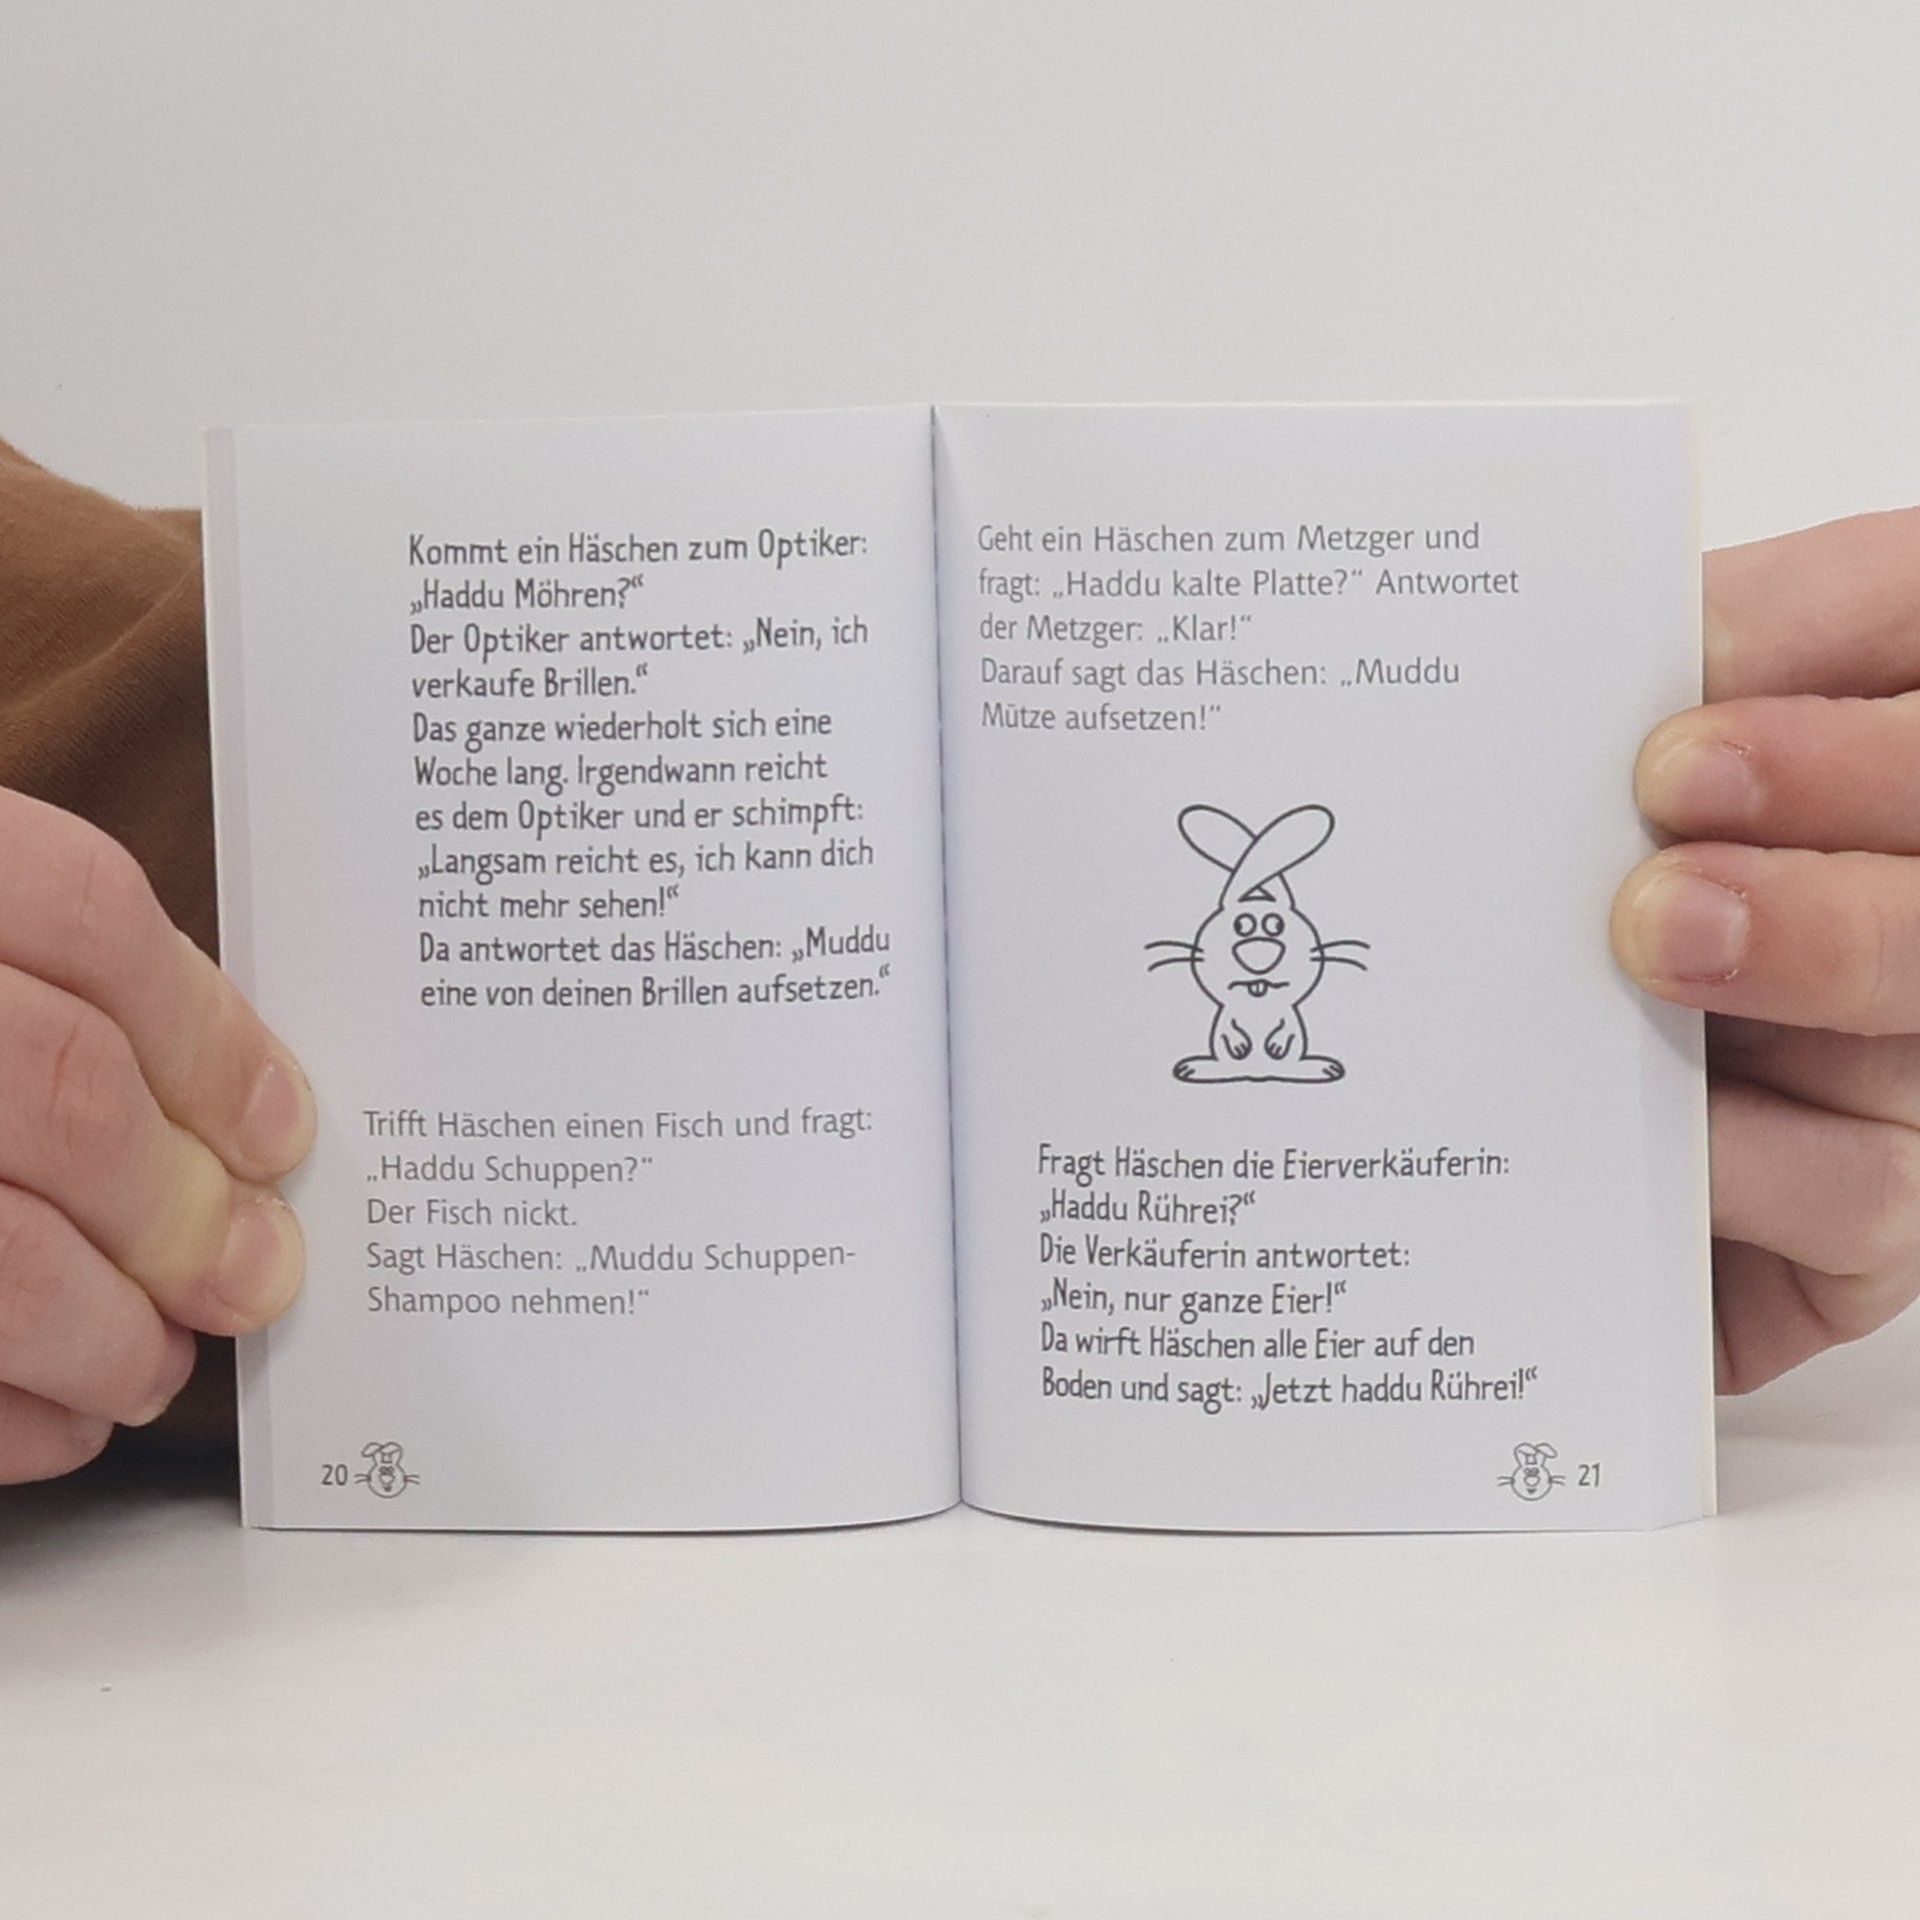 Kommt ein Häschen zum Optiker:
„Haddu Möhren?“
Der Optiker antwortet: „Nein, ich
verkaufe Brillen.“
Das ganze wiederholt sich eine
Woche lang. Irgendwann reicht
es dem Optiker und er schimpft:
„Langsam reicht es, ich kann dich
nicht mehr sehen!“
Da antwortet das Häschen: „Muddu
eine von deinen Brillen aufsetzen.“
Trifft Häschen einen Fisch und fragt:
„Haddu Schuppen?“
Der Fisch nickt.
Sagt Häschen: „Muddu Schuppen-
Shampoo nehmen!“
20
Geht ein Häschen zum Metzger und
fragt: „Haddu kalte Platte?“ Antwortet
der Metzger: „Klar!“
Darauf sagt das Häschen: „Muddu
Mütze aufsetzen!“
Fragt Häschen die Eierverkäuferin:
„Haddu Rührei?“
Die Verkäuferin antwortet:
„Nein, nur ganze Eier!“
Da wirft Häschen alle Eier auf den
Boden und sagt: „Jetzt haddu Rührei!“
21